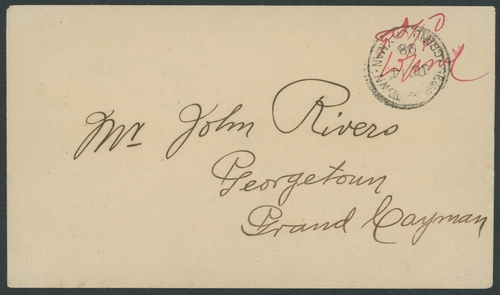 Mr John Rivers
Georgetown
Grand Cayman